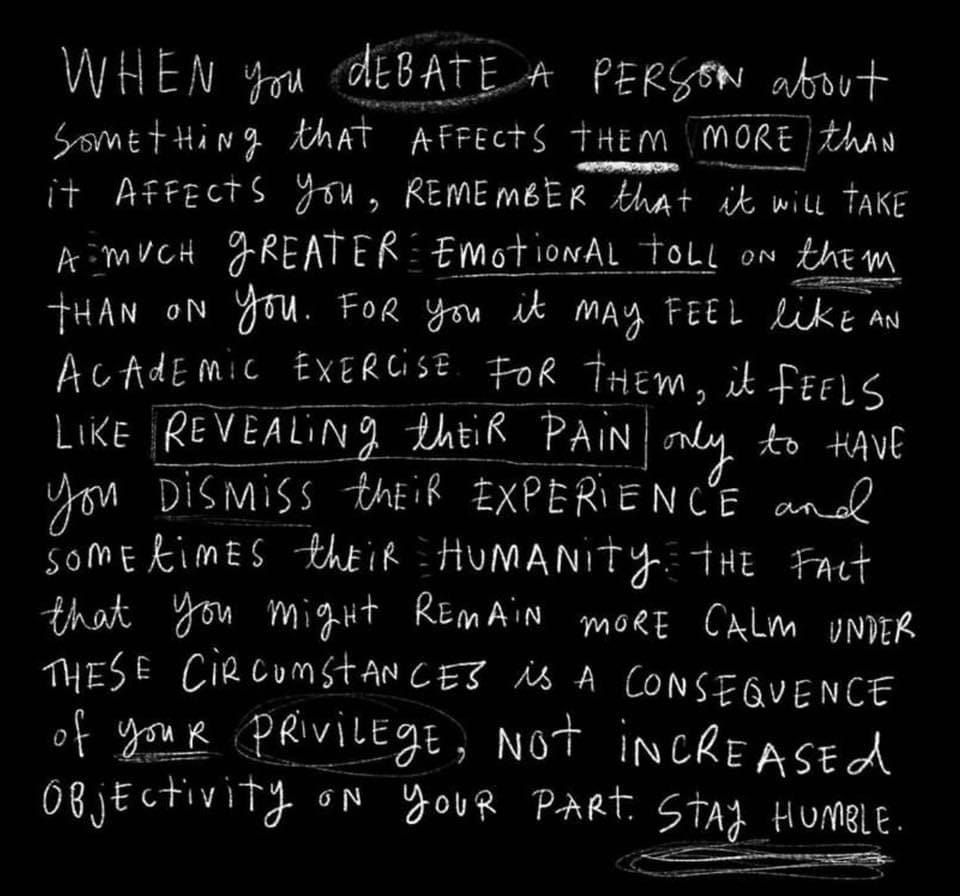 WHEN you dEBATE A PERSON about
SOMETHING that AFFECTS THEM MORE than
it AFFECTS you, REMEMBER that it will TAKE
A MUCH GREATER EMOTIONAL TOLL ON them
THAN ON you. FOR you it MAY FEEL like AN
ACADEMIC EXERCISE. FOR THEM, it FEELS
LIKE REVEALING their PAIN only to HAVE
you DISMISS their EXPERIENCE and
SOMETIMES their HUMANITY. THE FACT
that you might REMAIN MORE CALM UNDER
THESE CIRCUMSTANCES is A CONSEQUENCE
of youR PRIVILEGE, NOT INCREASEd
OBJECTIVITY ON YOUR PART. STAY HUMBLE.